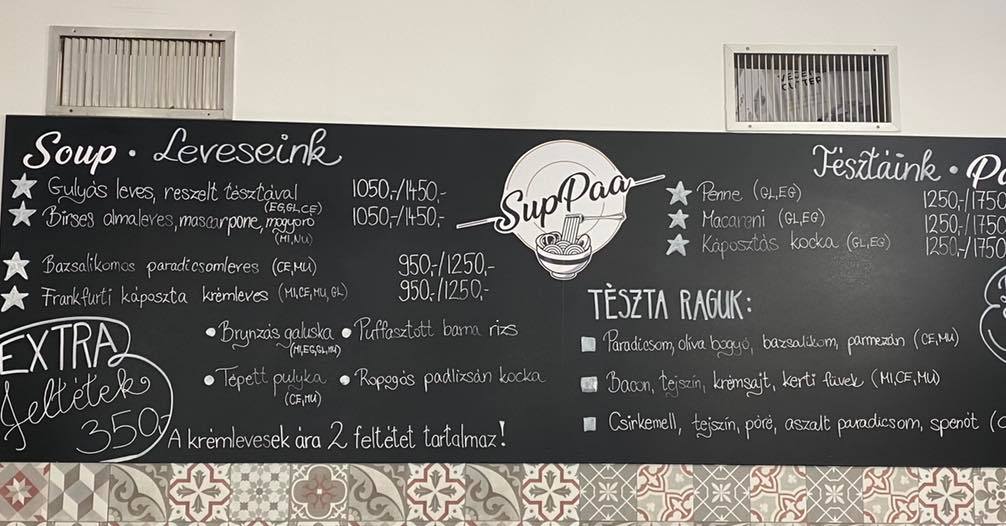 Soup · Leveseink
Gulyás leves, reszelt tésztával 1050,-/1450,-
(EG,GL,CE)
Birses almaleves, mascarpone, mogyoró 1050,-/1450,-
(MI,NU)
Bazsalikomos paradicsomleves (CE,MU) 950,-/1250,-
Frankfurti káposzta krémleves (MI,CE,MU,GL) 950,-/1250,-
EXTRA
feltétek
350,-
Brynzás galuska
(MI,EG,GL,MU)
Puffasztott barna rizs
Tépett pulyka
(CE,MU)
Ropogós padlizsán kocka
A krémlevesek ára 2 feltétet tartalmaz!
SupPaa
Tésztáink ·
Penne (GL,EG) 1250,-/1750
Macaroni (GL,EG) 1250,-/1750
Káposztás kocka (GL,EG) 1250,-/1750
TÈSZTA RAGUK:
Paradicsom, oliva bogyó, bazsalikom, parmezán (CE,MU)
Bacon, tejszín, krémsajt, kerti füvek (MI,CE,MU)
Csirkemell, tejszín, póré, aszalt paradicsom, spenót